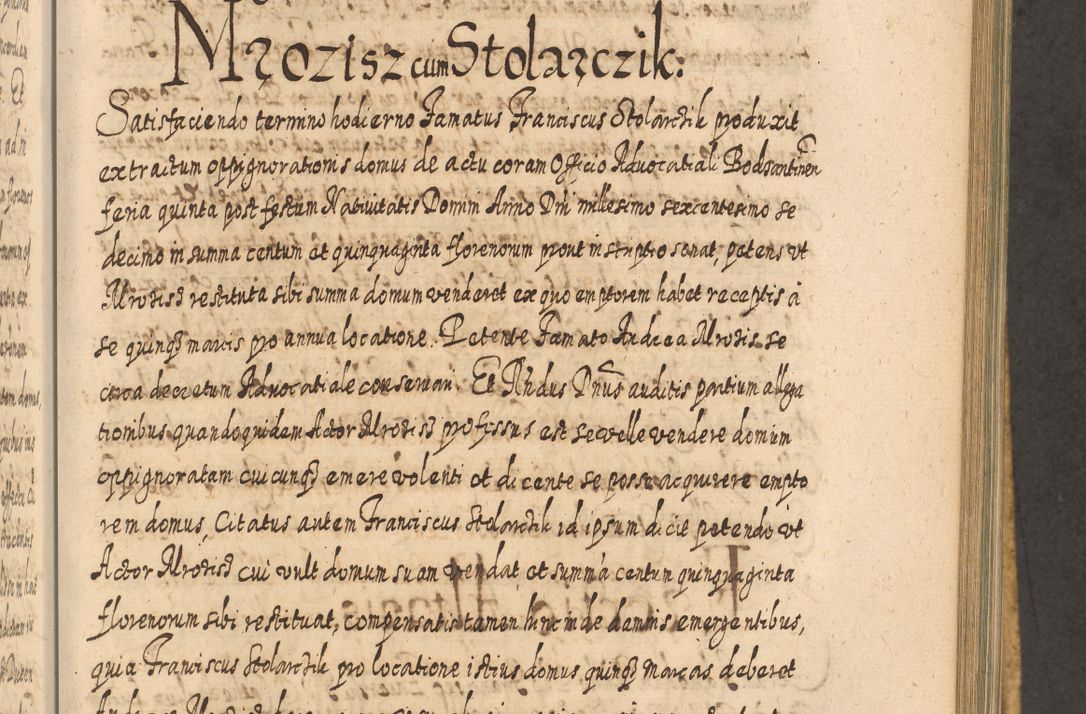 Mrozisz cum Stolarczik:
Satisfaciendo termino hodierno Famatus Franciscus Stolarczik produxit
extractum oppignorationis domus de actu coram Officio Advocatiali Bodzantinen
feria quinta post festum Nativitatis Domini Anno Dni millesimo sexcentesimo se
decimo in summa centum et quinquaginta florenorum prout in scripto sonat, petens ut
Mrozisz restituta sibi summa domum venderet ex quo emptorem habet receptis à
se quinq3 marcis pro annua locatione. Petente Famato Andrea Mrozis se
circa decretum Advocatiale conservari. Et Rndus Dnus auditis partium allega
tionibus quandoquidem Actor Mrozisz professus est se velle vendere domum
oppignoratam cuicunq3 emere volenti et dicente se posse acquirere empto
rem domus, Citatus autem Franciscus Stolarczik id ipsum dicit petendo ut
Actor Mrozisz cui vult domum suam vendat et summa centum quinquaginta
florenorum sibi restituat, compensatis tamen hinc inde damnis emergentibus,
quia Franciscus Stolarczik pro locatione istius domus quinq3 marcas deberet